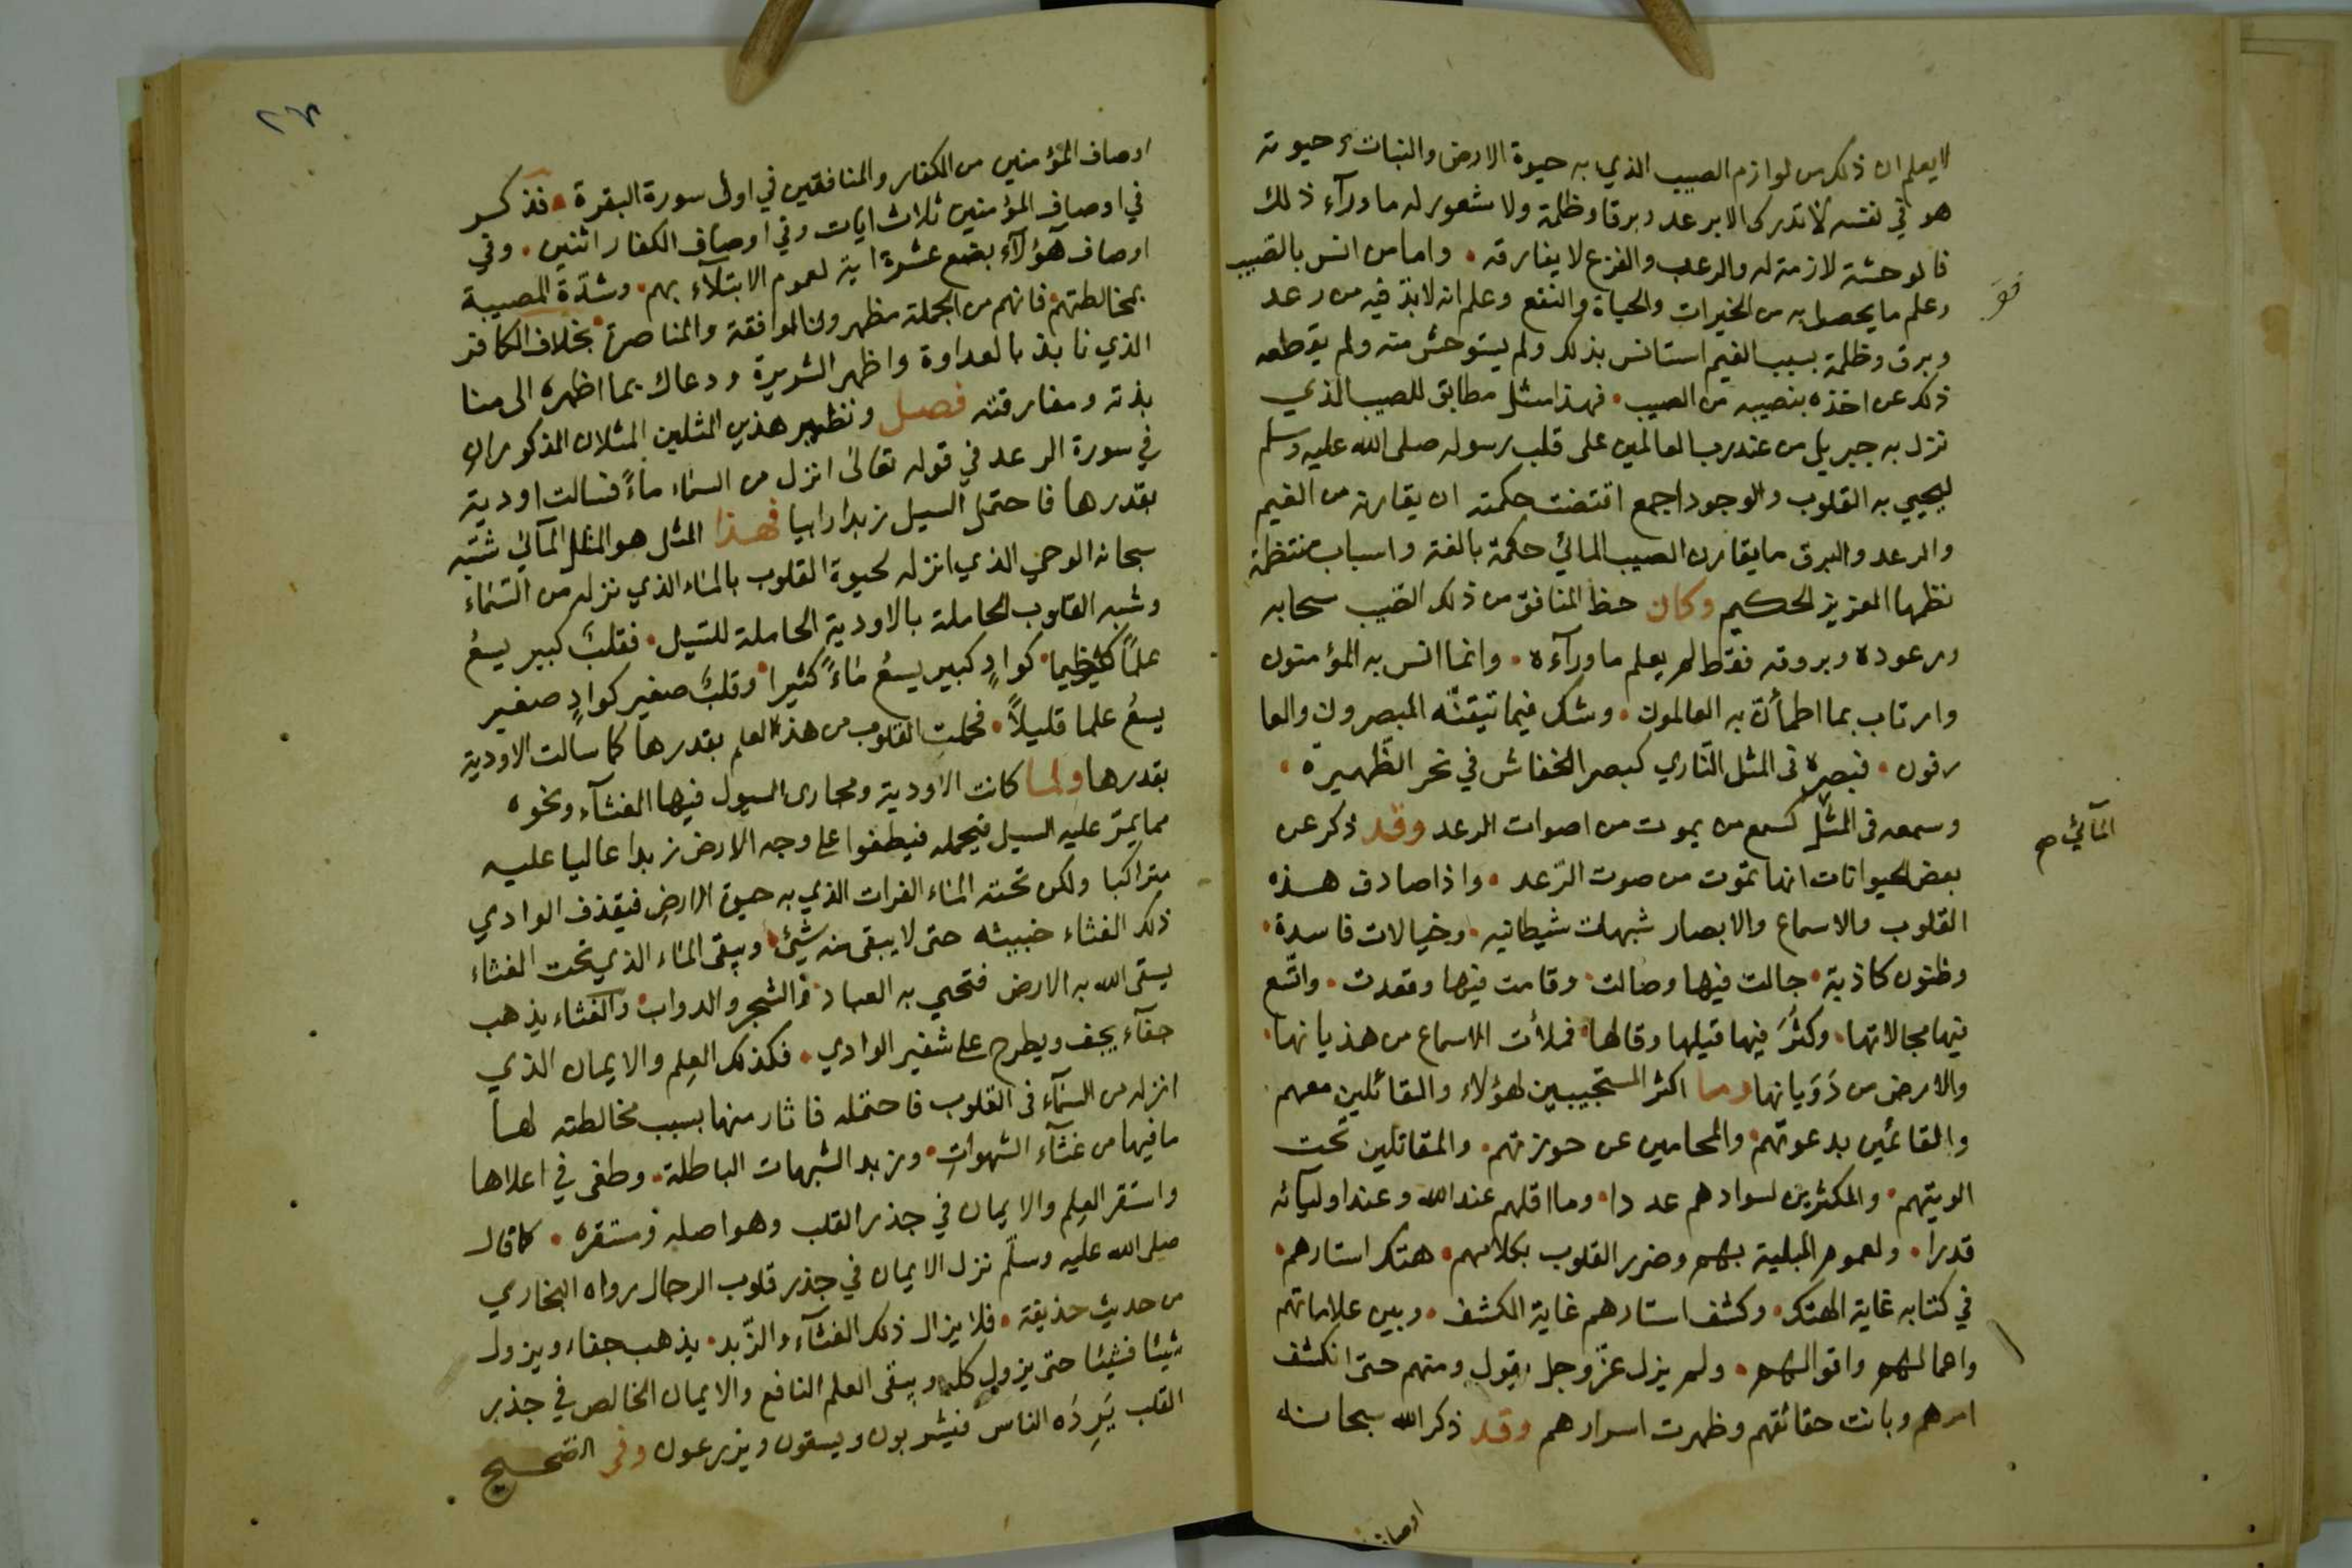 لا يعلم ان ذلك من لوازم الصيب الذي به حيوة الارض والنبات وحيوته
هو في نفسه لا تدرك الا برعد وبرقا وظلمة ولا شعور له ما ورآء ذلك
فالوحشة لازمة له والرعب والفزع لا يفارقه • واما من انس بالصيب
وعلم ما يحصل به من الخيرات والحياة والنفع وعلم انه لا بد فيه من رعد
وبرق وظلمة بسبب الغيم استانس بذلك ولم يستوحش منه ولم يقطعه
ذلك عن اخذه بنصيبه من الصيب • فهذا مثل مطابق للصيب الذي
نزل به جبريل من عند رب العالمين على قلب رسوله صلى الله عليه وسلم
ليحيي به القلوب والوجود اجمع اقتضت حكمته ان يقارنه من الغيم
والرعد والبرق ما يقارن الصيب المائي حكمة بالغة واسباب منتظمة
نظمها العزيز الحكيم وكان حظ المنافق من ذلك الصيب سحابه
ورعوده وبروقه فقط لم يعلم ما ورآءه • وانما انس به المؤمنون
وارتاب بما اطمأن به العالمون • وشك فيما تيقنه المبصرون والعا
رفون • فبصره في المثل الناري كبصر الخفاش في نحر الظهيرة •
وسمعه في المثل كسمع من يموت من اصوات الرعد وقد ذكر عن
المائي صح
بعض الحيوانات انها تموت من صوت الرعد • واذا صادف هذه
القلوب والاسماع والابصار شبهات شيطانيه • وخيالات فاسدة •
وظنون كاذبة • جالت فيها وصالت • وقامت فيها وقعدت • واتسع
فيها مجالاتها • وكثر فيها قيلها وقالها • فملأت الاسماع من هذيانها •
والارض من دويانها وما اكثر المستجيبين لهؤلاء والقائلين معهم •
والقائمين بدعوتهم • والمحامين عن حوزتهم • والمقاتلين تحت
الويتهم • والمكثرين لسوادهم عددا • وما اقلهم عند الله وعند اوليآئه
قدرا • ولعموم البلية بهم وضرر القلوب بكلامهم • هتك استارهم •
في كتابه غاية الهتك • وكشف استارهم غاية الكشف • وبين علاماتهم
واعمالهم واقوالهم • ولم يزل عز وجل يقول ومنهم حتى انكشف
امرهم وبانت حقائقهم وظهرت اسرارهم وقد ذكر الله سبحانه
اوصاف
اوصاف المؤمنين من الكفار والمنافقين في اول سورة البقرة • فذكر
في اوصاف المؤمنين ثلاث ايات وفي اوصاف الكفار اثنين • وفي
اوصاف هؤلآء بضع عشرة اية لعموم الابتلآء بهم • وشدة المصيبة
بمخالطتهم فانهم من الجملة مظهرون الموافقة والمناصرة • بخلاف الكافر
الذي نابذ بالعداوة واظهر الشريرة ودعاك بما اظهره الى منا
بذته ومفارقته فصل ونظير هذين المثلين المثلان المذكوران
في سورة الرعد في قوله تعالى انزل من السماء ماءً فسالت اودية
بقدرها فاحتمل السيل زبدا رابيا فهذا المثل هو المثل المآئي شبه
سبحانه الوحي الذي انزله لحيوة القلوب بالماء الذي نزله من السماء
وشبه القلوب الحاملة بالاودية الحاملة للسيل • فقلب كبير يسع
علماً عظيما • كوادٍ كبير يسع ماءً كثيرا • وقلب صغير كوادٍ صغير
يسع علما قليلاً • فحملت القلوب من هذا العلم بقدرها كما سالت الاودية
بقدرها ولما كانت الاودية ومجاري السيول فيها الغثآء ونحوه
مما يمر عليه السيل فيحمله فيطفوا على وجه الارض زبدا عاليا عليه
متراكبا ولكن تحته الماء الفرات الذي به حيوة الارض فيقذف الوادي
ذلك الغثاء خبيثه حتى لا يبقى منه شيئ • ويبقى الماء الذي تحت الغثاء
يسقي الله به الارض فتحيي به العباد • والشجر والدواب • والغثاء يذهب
جفآء يجف ويطرح على شفير الوادي • فكذلك العلم والايمان الذي
انزله من السمآء في القلوب فاحتمله فاثار منها بسبب مخالطته لها
ما فيها من غثآء الشهوات • وزبد الشبهات الباطلة • وطفى في اعلاها
واستقر العلم والايمان في جذر القلب وهو اصله ومستقره • كما قال
صلى الله عليه وسلم نزل الايمان في جذر قلوب الرجال رواه البخاري
من حديث حذيفة • فلا يزال ذلك الغثآء والزبد • يذهب جفاء ويزول
شيئا فشيئا حتى يزول كله ويبقى العلم النافع والايمان الخالص في جذر
القلب يَرِدُه الناس فيشربون ويسقون ويزرعون وفي الصحيح